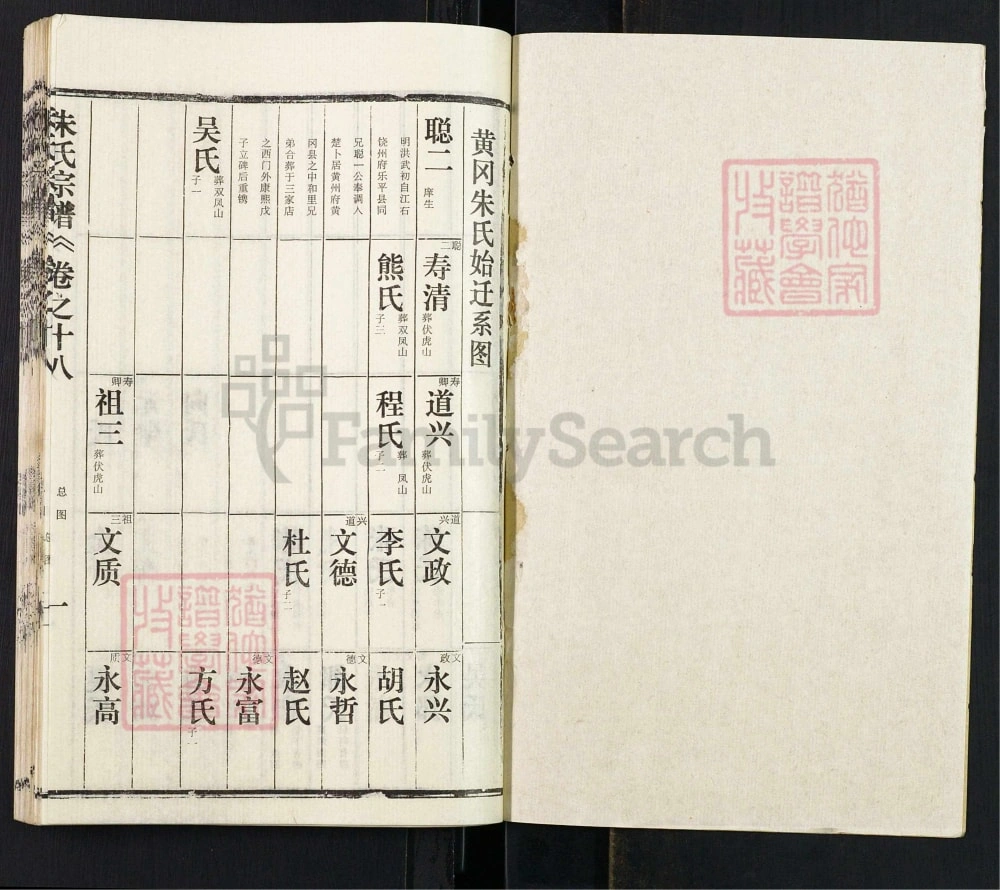 黄冈朱氏始迁系图
聪二
庠生
明洪武初自江右
饶州府乐平县同
兄聪一公奉调人
楚卜居黄州府黄
冈县之中和里兄
弟合葬于三家店
之西门外康熙戊
子立碑后重镌
吴氏
葬双凤山
子一
聪二
寿清
葬伏虎山
熊氏
葬双凤山
子三
寿卿
道兴
葬伏虎山
程氏
葬 凤山
子二
寿卿
祖三
葬伏虎山
道兴
文政
李氏
子一
道兴
文德
杜氏
子二
祖三
文质
文政
永兴
胡氏
文德
永哲
赵氏
文德
永富
方氏
文质
永高
朱氏宗谱 卷之十八
总图
一
FamilySearch
猶他家
譜學會
收藏
猶他家
譜學會
收藏